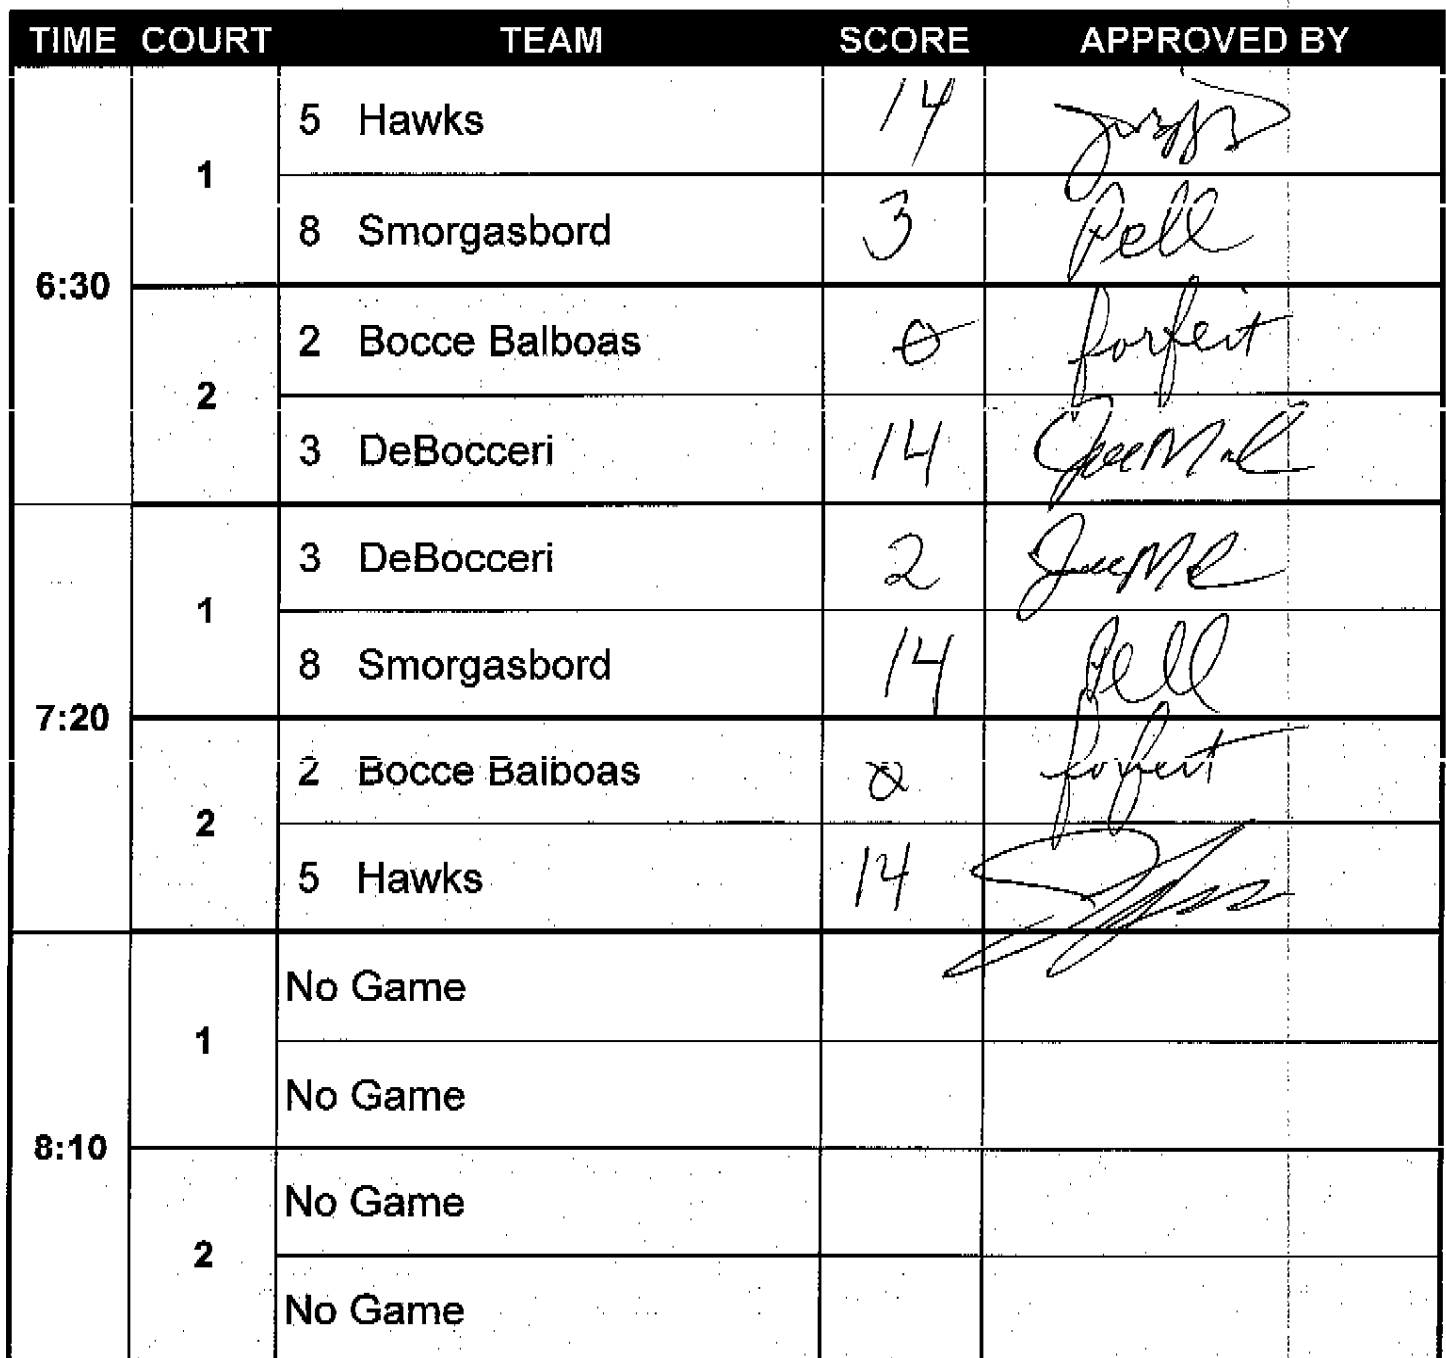 TIME COURT TEAM SCORE APPROVED BY
6:30
1
5 Hawks 14
8 Smorgasbord 3 Pell
2
2 Bocce Balboas 0 forfeit
3 DeBocceri 14
7:20
1
3 DeBocceri 2
8 Smorgasbord 14 Pell
2
2 Bocce Balboas 0 forfeit
5 Hawks 14
8:10
1
No Game
No Game
2
No Game
No Game